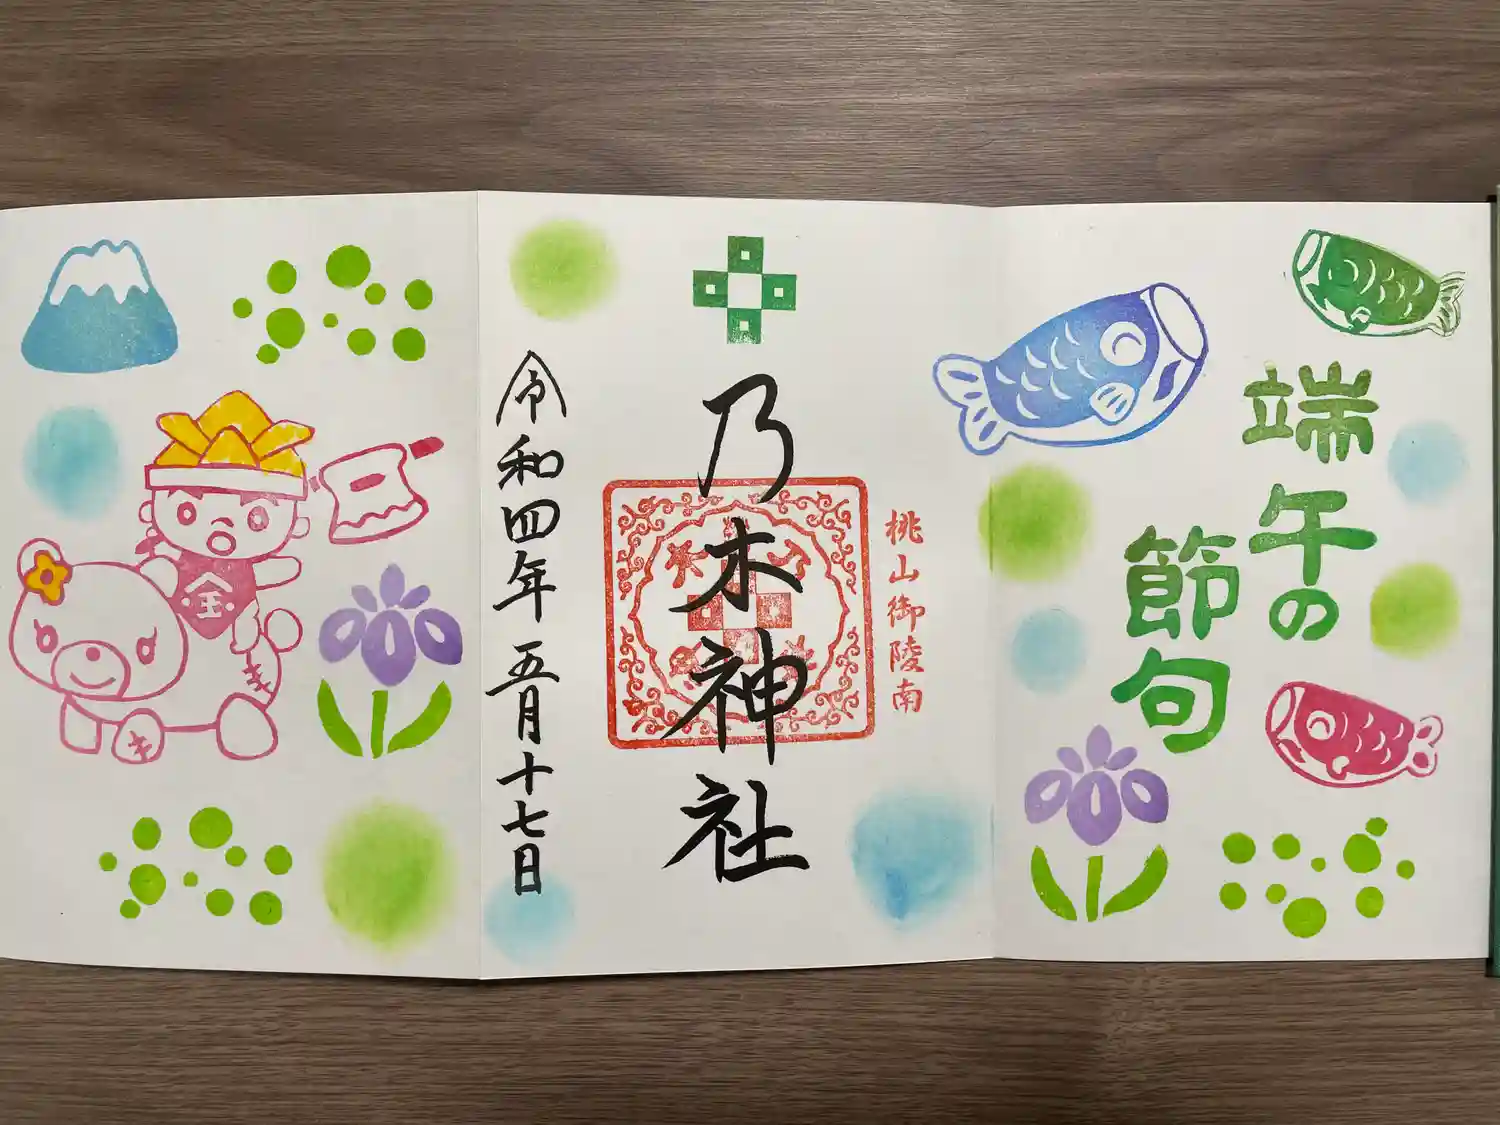 端午の
節句
桃山御陵南
乃木神社
令和四年五月十七日
金